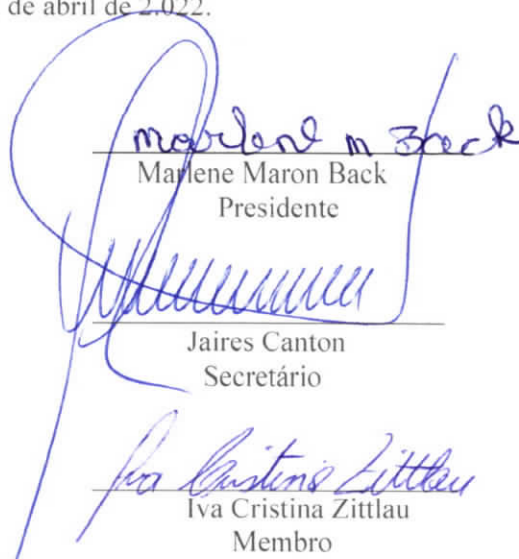 de abril de 2.022.
Marlene m Back
Marlene Maron Back
Presidente
Jaires Canton
Secretário
Iva Cristina Zittlau
Iva Cristina Zittlau
Membro